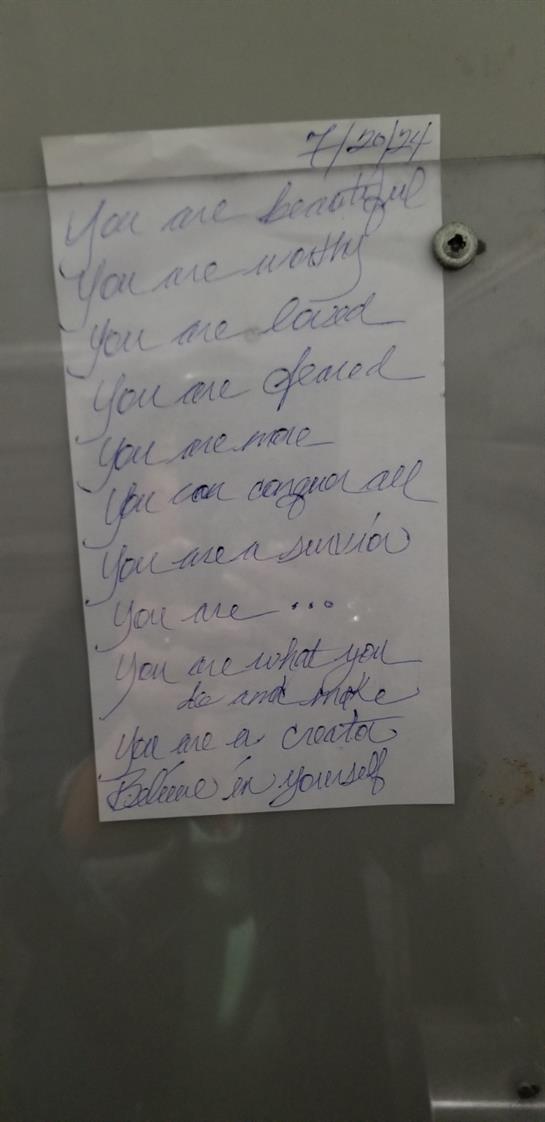 7/20/24
You are beautiful
You are worthy
You are loved
You are feared
You are more
You can conquor all
You are a survivor
You are ...
You are what you
do and make
You are a creator
Believe in yourself